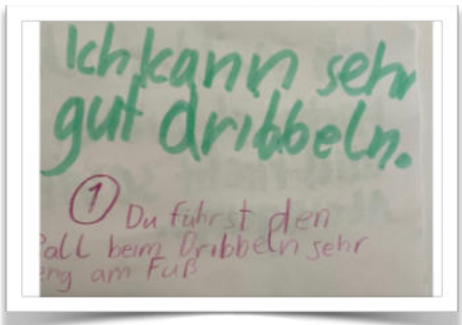 Ich kann sehr
gut dribbeln.
① Du führst den
Ball beim Dribbeln sehr
eng am Fuß